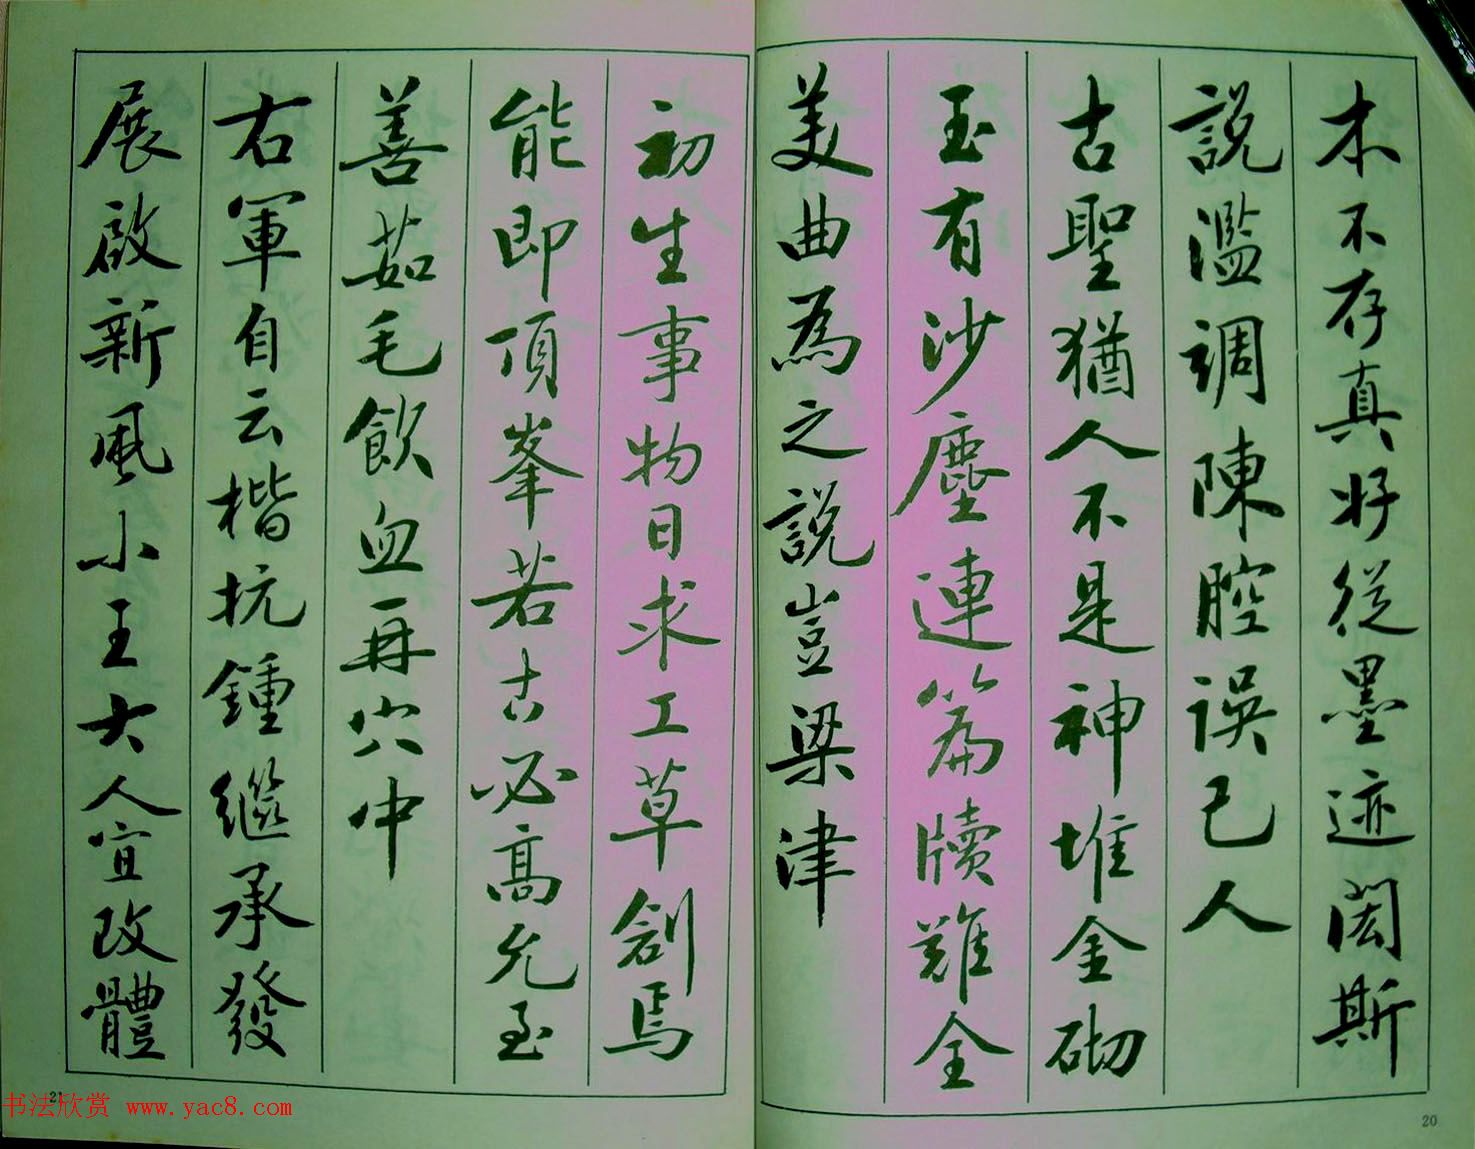 木不存真好從墨迹闊斯
說濫調陳腔誤已人
古聖猶人不是神堆金砌
玉有沙塵連篇牘難全
美曲為之說豈梁津
初生事物日求工草創焉
能即頂峯若古必高允至
善茹毛飲血再穴中
右軍自云楷抗鍾繼承發
展啟新風小王大人宜改體
21
书法欣赏 www.yac8.com
20